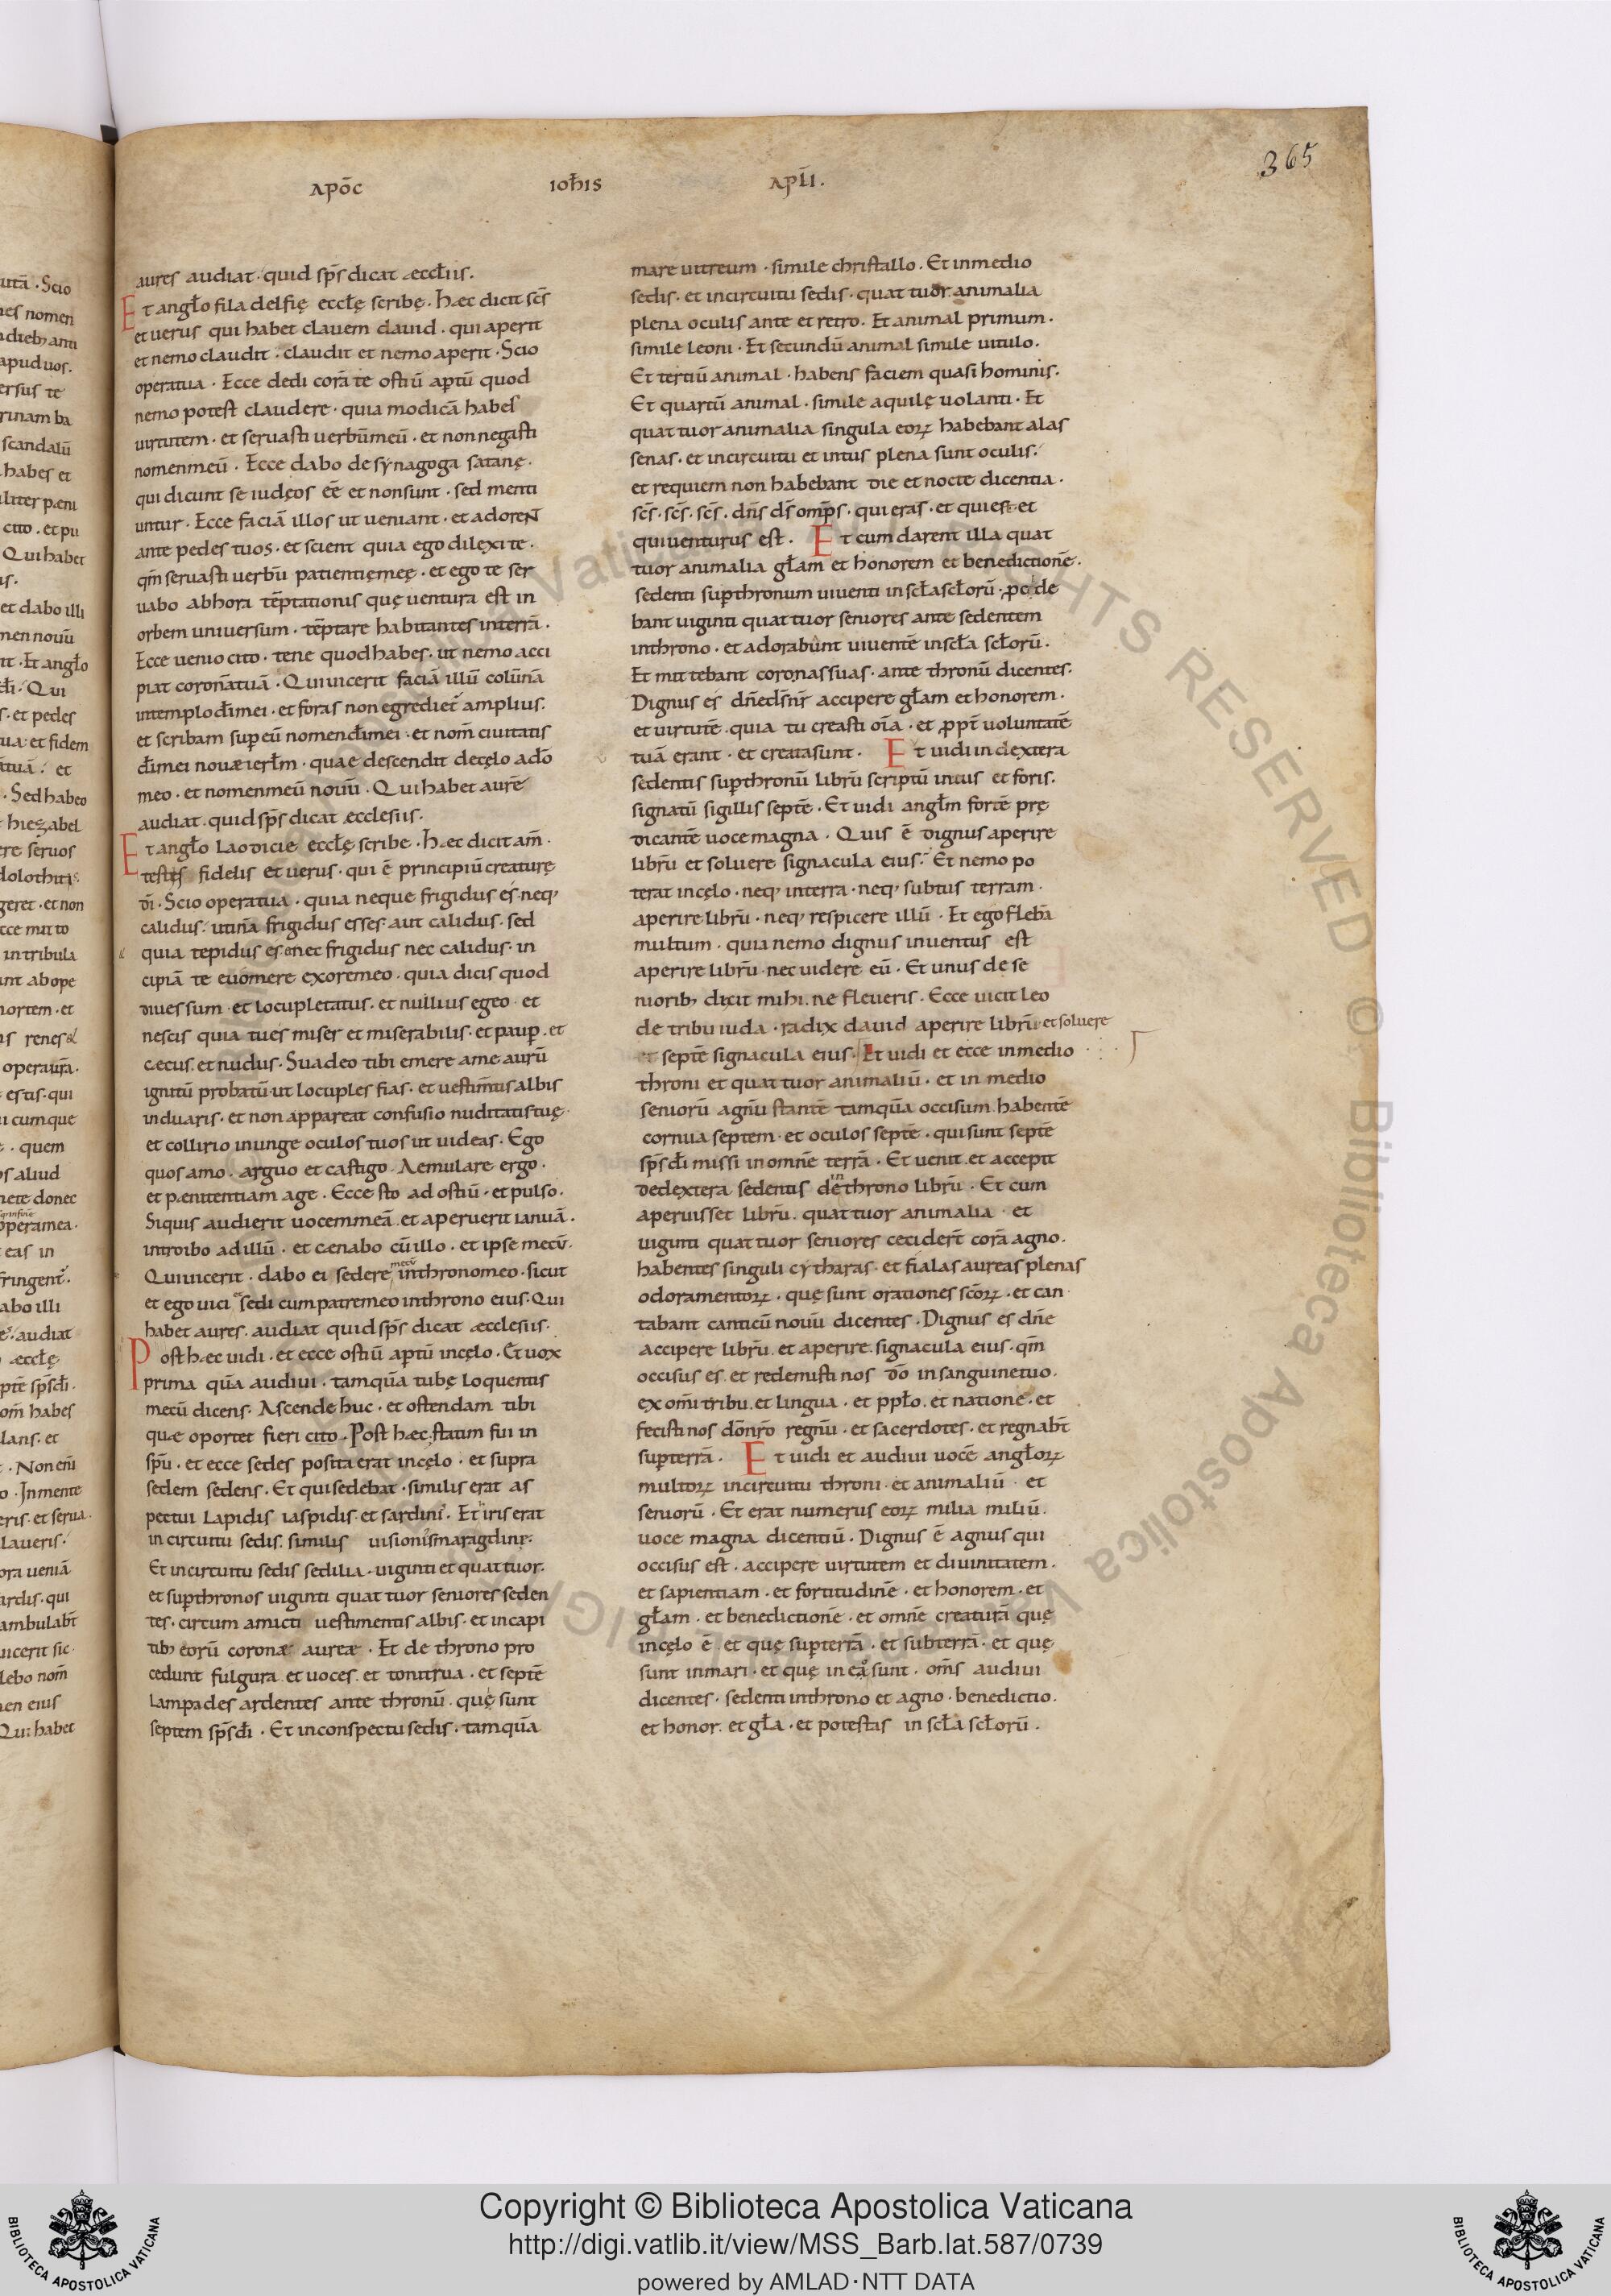 365
APOC̄ IOH̄IS APL̄I.
aures audiat · quid sp̄s dicat æccl̄iis.
Et angl̄o filadelfię eccl̄ę scribe · Hæc dicit sc̄s
et uerus qui habet clauem dauid · qui aperit
et nemo claudit · claudit et nemo aperit · Scio
opera tua · Ecce dedi corā te ostiū aptū quod
nemo potest claudere · quia modicā habes
uirtutem · et seruasti uerbū meū · et non negasti
nomen meū · Ecce dabo de synagoga satanę ·
qui dicunt se iudęos eē et non sunt · sed menti
untur · Ecce faciā illos ut ueniant · et adorent
ante pedes tuos · et scient quia ego dilexi te ·
qm̄ seruasti uerbū patientię meę · et ego te ser
uabo ab hora tēptationis quę uentura est in
orbem uniuersum · tēptare habitantes in terrā ·
Ecce uenio cito · tene quod habes · ut nemo acci
piat coronā tuā · Qui uicerit faciā illū colūnā
in templo dī mei · et foras non egrediet̄ amplius ·
et scribam sup eū nomen dī mei · et nom̄ ciuitatis
dī mei nouæ ierl̄m · quae descendit de cęlo a dō
meo · et nomen meū nouū · Qui habet aurē
audiat · quid sp̄s dicat æcclesiis.
Et angl̄o Laodicie eccl̄ę scribe · Hæc dicit am̄ ·
testes fidelis et uerus · qui ē principiū creaturę
dī · Scio opera tua · quia neque frigidus es · neq;
calidus · utinā frigidus esses aut calidus · sed
quia tepidus es · et nec frigidus nec calidus · in
cipiā te euomere ex ore meo · quia dicis quod
diues sum · et locupletatus · et nullius egeo · et
nescis quia tu es miser et miserabilis · et paup · et
cæcus · et nudus · Suadeo tibi emere a me aurū
ignitū probatū · ut locuples fias · et uestim̄tis albis
induaris · et non appareat confusio nuditatis tuę ·
et collirio inunge oculos tuos ut uideas · Ego
quos amo · arguo et castigo · Aemulare ergo ·
et pænitentiam age · Ecce sto ad ostiū · et pulso ·
Siquis audierit uocem meā et aperuerit ianuā ·
introibo ad illū · et cænabo cū illo · et ipse mecū ·
Qui uicerit · dabo ei sedere mecū in throno meo · sicut
et ego uici et sedi cum patre meo in throno eius · Qui
habet aures · audiat quid sp̄s dicat æcclesiis ·
Post hæc uidi · et ecce ostiū aptū in cęlo · Et uox
prima quā audiui · tamquā tubę loquentis
mecū dicens · Ascende huc · et ostendam tibi
quæ oportet fieri cito · Post hæc statim fui in
sp̄u · et ecce sedes posita erat in cęlo · et supra
sedem sedens · Et qui sedebat · similis erat as
pectui Lapidis iaspidis · et sardini · Et iris erat
in circuitu sedis · similis uisioni smaragdinę ·
Et in circuitu sedis sedilia · uiginti et quattuor ·
et sup thronos uiginti quattuor seniores seden
tes · circum amicti uestimentis albis · et in capi
tib; eorū coronæ aureæ · Et de throno pro
cedunt fulgura et uoces · et tonitrua · et septē
lampades ardentes ante thronū · quę sunt
septem sp̄s dī · Et in conspectu sedis · tamquā
mare uitreum · simile christallo · Et in medio
sedis · et in circuitu sedis · quattuor animalia
plena oculis ante et retro · Et animal primum ·
simile leoni · Et secundū animal simile uitulo ·
Et tertiū animal · habens faciem quasi hominis ·
Et quartū animal · simile aquilę uolanti · Et
quattuor animalia singula eoꝝ habebant alas
senas · et in circuitu et intus plena sunt oculis ·
et requiem non habebant die et nocte dicentia ·
sc̄s · sc̄s · sc̄s · dn̄s ds̄ omp̄s · qui eras · et qui est · et
qui uenturus est · Et cum darent illa quat
tuor animalia gl̄am et honorem et benedictionē ·
sedenti sup thronum uiuenti in scl̄a scl̄orū · pcide
bant uiginti quattuor seniores ante sedentem
in throno · et adorabunt uiuentē in scl̄a scl̄orū ·
Et mittebant coronas suas · ante thronū dicentes ·
Dignus es dn̄e ds̄ nr̄ accipere gl̄am et honorem ·
et uirtutē · quia tu creasti oīa · et ppt̄ uoluntatē
tuā erant · et creata sunt · Et uidi in dextera
sedentis sup thronū librū scriptū intus et foris ·
signatū sigillis septē · Et uidi angl̄m fortē prę
dicantē uoce magna · Quis ē dignus aperire
librū et soluere signacula eius · Et nemo po
terat in cęlo · neq; in terra · neq; subtus terram ·
aperire librū · neq; respicere illū · Et ego flebā
multum · quia nemo dignus inuentus est
aperire librū · nec uidere eū · Et unus de se
niorib; dicit mihi · ne fleueris · Ecce uicit leo
de tribu iuda · radix dauid aperire librū et soluere
septē signacula eius · Et uidi et ecce in medio
throni et quattuor animaliū · et in medio
seniorū agnū stantē tamquā occisum habentē
cornua septem · et oculos septē · qui sunt septē
sp̄s dī missi in omnē terrā · Et uenit et accepit
de dextera sedentis de in throno librū · Et cum
aperuisset librū · quattuor animalia · et
uiginti quattuor seniores cecider̄t corā agno ·
habentes singuli cytharas · et fialas aureas plenas
odoramentoꝝ · quę sunt orationes sc̄oꝝ · et can
tabant canticū nouū dicentes · Dignus es dn̄e
accipere librū et aperire signacula eius · qm̄
occisus es et redemisti nos dō in sanguine tuo ·
ex om̄i tribu et lingua · et ppl̄o et natione · et
fecisti nos dō nr̄o regnū · et sacerdotes · et regnabt̄
sup terrā · Et uidi et audiui uocē angl̄oꝝ
multoꝝ in circuitu throni et animaliū · et
seniorū · Et erat numerus eoꝝ milia miliū ·
uoce magna dicentiū · Dignus ē agnus qui
occisus est · accipere uirtutem et diuinitatem ·
et sapientiam · et fortitudinē · et honorem · et
gl̄am · et benedictionē · et omnē creaturā quę
in cęlo ē et quę sup terrā · et sub terrā · et quę
sunt in mari · et quę in ea sunt · om̄s audiui
dicentes · sedenti in throno et agno · benedictio ·
et honor · et gl̄a · et potestas in scl̄a scl̄orū ·
Copyright © Biblioteca Apostolica Vaticana
http://digi.vatlib.it/view/MSS_Barb.lat.587/0739
powered by AMLAD·NTT DATA
BIBLIOTECA APOSTOLICA VATICANA
BIBLIOTECA APOSTOLICA VATICANA